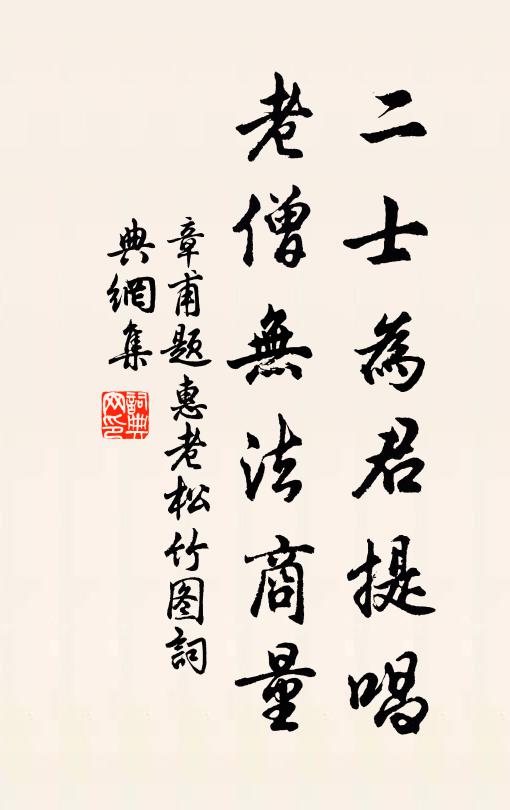 二士為君提唱
老僧無法商量
章甫题惠老松竹图詞
典網集
詞典网印